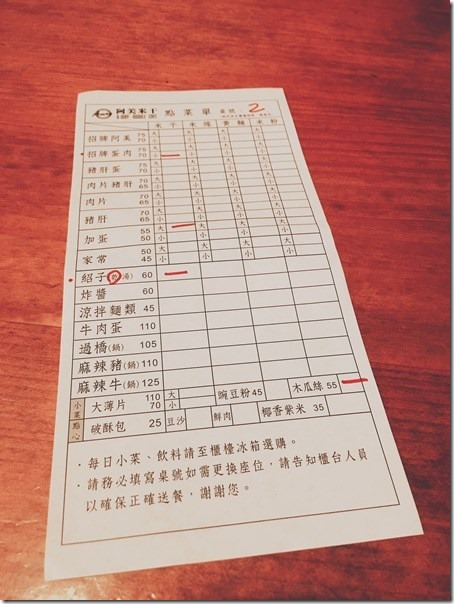 阿美米干 點菜單 桌號 2
米干 米線 黃麵 米粉
招牌阿美 75 大
70 小
招牌蛋肉 75 大
70 小
豬肝蛋 70 大
65 小
肉片豬肝 70 大
65 小
肉片 70 大
65 小
豬肝 70 大
65 小
加蛋 55 大
50 小
家常 50 大
45 小
紹子(乾湯) 60
炸醬 60
涼拌麵類 45
牛肉蛋 110
過橋(鍋) 105
麻辣豬(鍋) 110
麻辣牛(鍋) 125
小菜點心
大薄片 110 大 70 小 豌豆粉 45 木瓜絲 55
破酥包 25 豆沙 鮮肉 椰香紫米 35
·每日小菜、飲料請至櫃檯冰箱選購。
·請務必填寫桌號如需更換座位,請告知櫃台人員
以確保正確送餐,謝謝您。